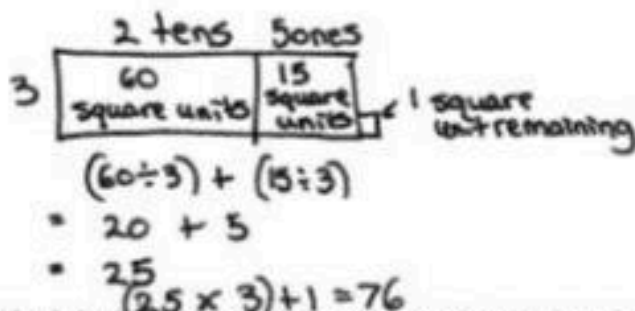 2 tens 5ones
3 60 square units 15 square units 1 square unit remaining
(60÷3) + (15÷3)
= 20 + 5
= 25
(25 x 3)+1=76